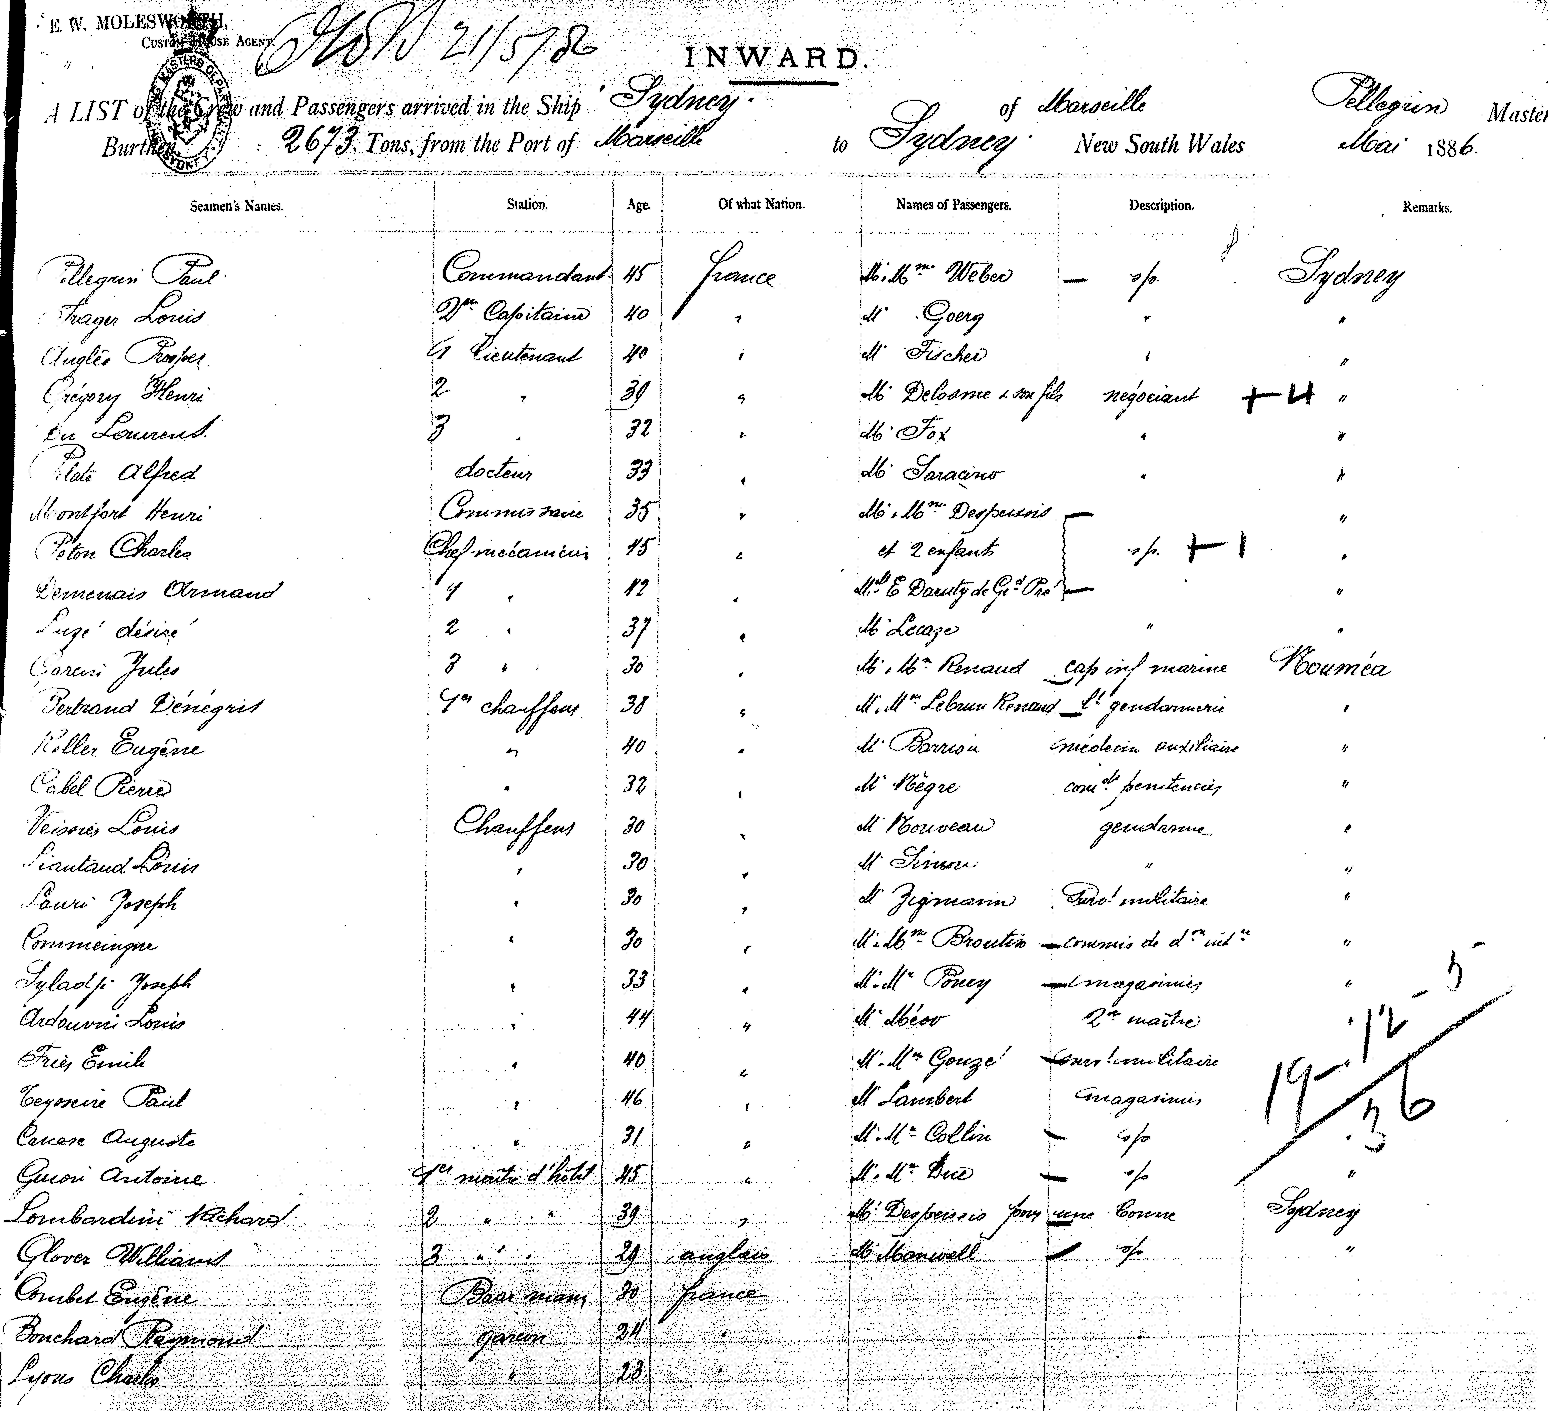 E. W. MOLESWORTH,
CUSTOM HOUSE AGENT.
21/5/86
INWARD.
A LIST of the Crew and Passengers arrived in the Ship Sydney. of Marseille Pellegrin Master
Burthen 2673 Tons, from the Port of Marseille to Sydney New South Wales Mai 1886.
Seamen's Names. Station. Age. Of what Nation. Names of Passengers. Description. Remarks.
Pellegrin Paul Commandant 45 france M. Mme Weber — s/p Sydney
Louis 2me Capitaine 40 " M Goerg " "
Anglès Prosper 1 Lieutenant 40 " M Fischer " "
Grégory Henri 2 " 39 " M Delosme & son fils négociant + 4 "
Laurent 3 " 32 " M Fox " "
Alfred docteur 33 " M Saracino " "
Montfort Henri Commissaire 35 " M. Mme Despeissis — "
Peton Charles Chef mécanicien 45 " et 2 enfants s/p + 1 "
Armand 1 " 42 " E Daruty de Gd Pré — "
Lugé désiré 2 " 37 " M Lecaze " "
Jules 3 " 30 " M. Me Renaud cap inf marine Nouméa
Bertrand Dénégris 1er chauffeur 38 " M. Me Lebrun Renaud — Lt gendarmerie "
Keller Eugène " 40 " M Barrion médecin auxiliaire "
Cabel Pierre " 32 " M Nègre penitencier "
Louis Chauffeur 30 " M Nouveau gendarme "
Liautaud Louis " 30 " M Simon " "
Pauri Joseph " 30 " M Zigmann Surv! militaire "
Commeingue " 30 " M. Me Broutin — commis de "
Syladji Joseph " 33 " M. Me Poucy — magasinier " 5
Ardouvin Louis " 44 " M Méov 2me maître " 12
Friès Emile " 40 " M. Me Gouzé — surv! militaire 19 -
Teysseire Paul " 46 " M Lambert magasinier 36
Auguste " 31 " M. Me Collin — s/p "
Guion Antoine 1er maitre d'hôtel 45 " M. Me Duc — s/p "
Lombardini Richard 2 " " 39 " M. Despeissis pour une bonne Sydney
Glover Williams 3 " " 29 anglais M Manwell — s/p "
Combet Eugène Baar man 30 france
Bouchard Raymond garcon 24 "
Lyons Charles " 23 "